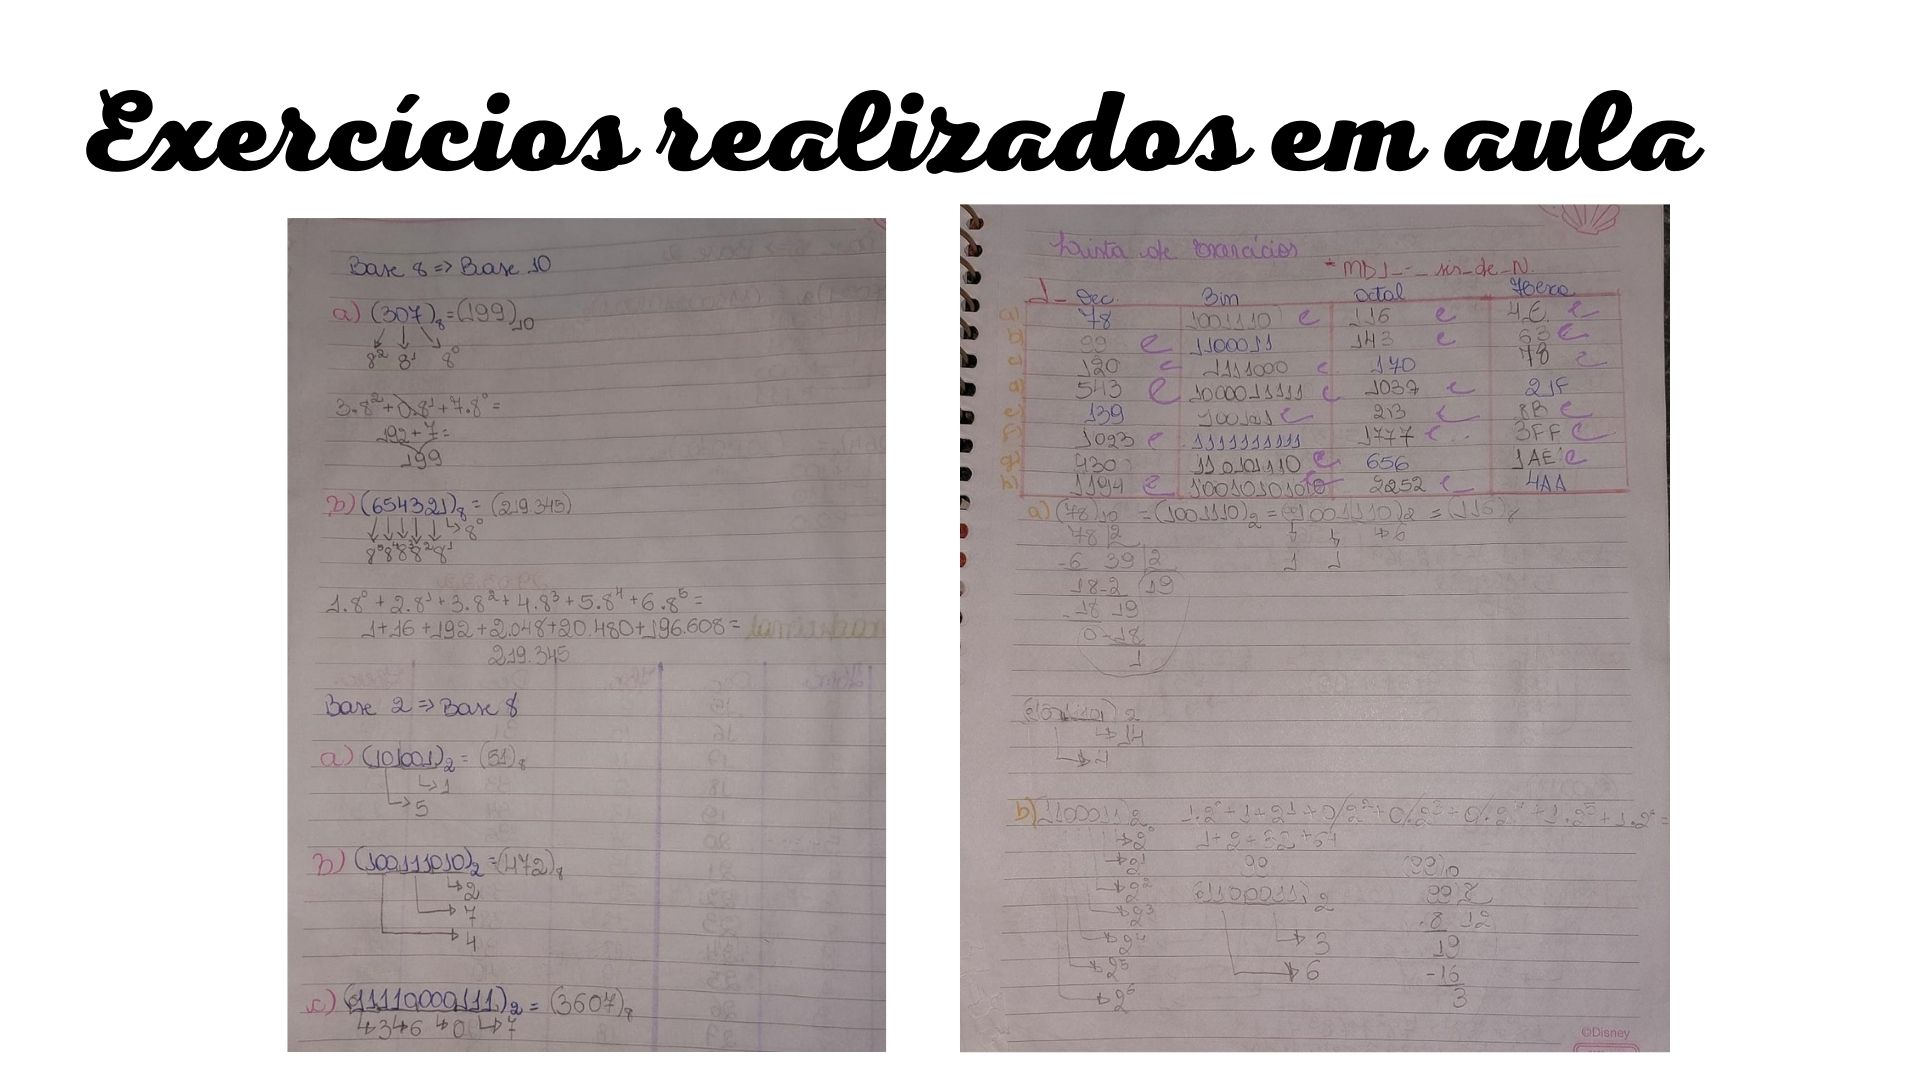 Exercícios realizados em aula
Base 8 => Base 10
a) (307)₈ = (199)₁₀
8² 8¹ 8⁰
3.8² + 0.8¹ + 7.8⁰ =
192 + 7 =
199
b) (654321)₈ = (219.345)
8⁵ 8⁴ 8³ 8² 8¹ 8⁰
1.8⁰ + 2.8¹ + 3.8² + 4.8³ + 5.8⁴ + 6.8⁵ =
1 + 16 + 192 + 2.048 + 20.480 + 196.608 =
219.345
Base 2 => Base 8
a) (101001)₂ = (51)₈
1
5
b) (100111010)₂ = (472)₈
2
7
4
c) (11110000111)₂ = (3607)₈
3 6 0 7
Lista de Exercícios
* MD1_-_ sis_de_N.
1_ Dec. Bin Octal Hexa
78 1001110 c 116 c 4E c
99 c 1100011 143 c 63 c
120 c 1111000 c 170 78 c
543 c 1000011111 c 1037 c 21F
139 c 213 c 8B c
1023 c 1111111111 1777 c 3FF c
430 110101110 c 656 1AE c
1194 c 10010101010 2252 c 4AA
a) (78)₁₀ = (1001110)₂ = (1001110)₂ = (116)₈
78 2 6
-6 39 2 1 1
18-2 19
-18 19
0-18
1
14
4
b) (1100011)₂
1+2+32+64
2⁰
2¹
99
(99)₁₀
2²
(1100011)₂
99 8
2³
-8 12
2⁴
3
19
2⁵
6
-16
2⁶
3
©Disney